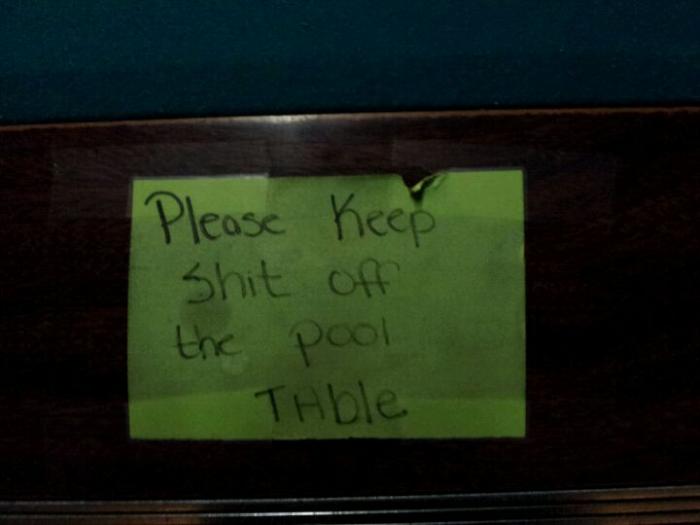 Please Keep
Shit off
the pool
TAble